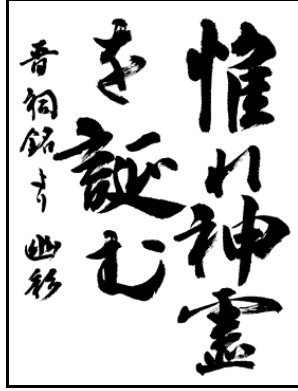 惟れ神霊
を誕む
晋祠銘より 幽彩